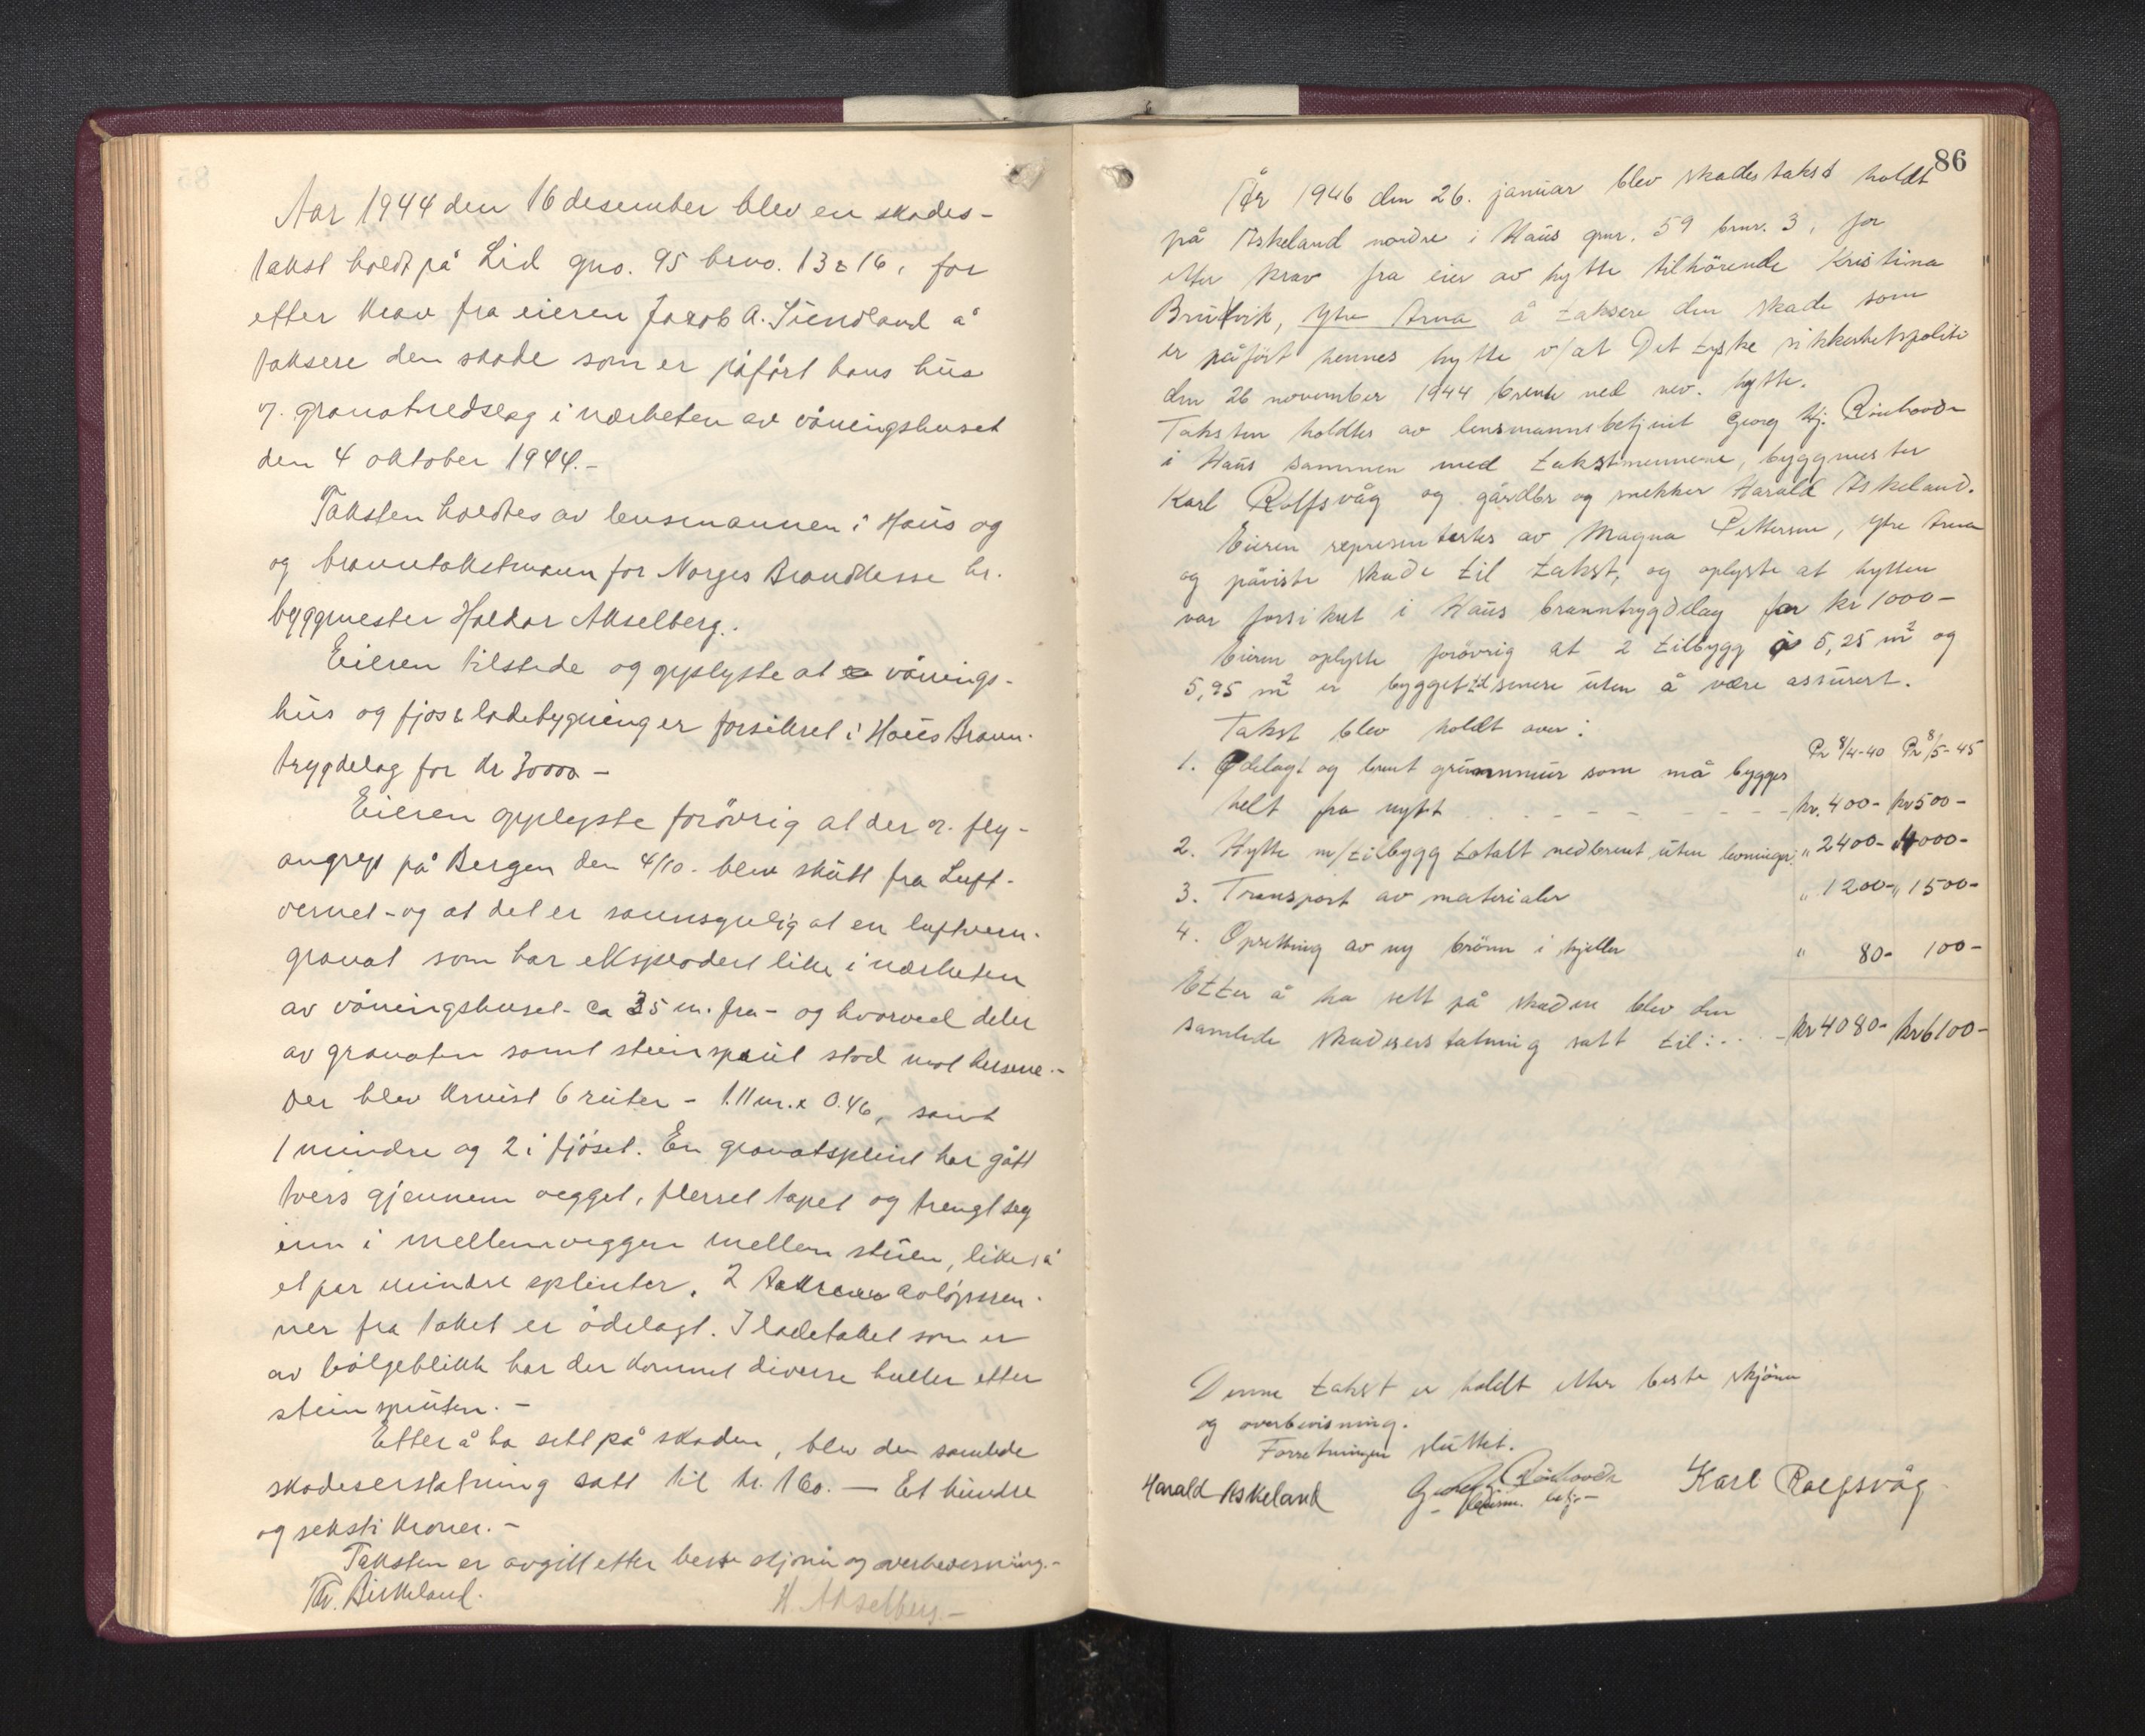 Aar 1944 den 16 desember blev en skades-
takst holdt på Lid gno. 95 brno. 13 & 16, for
etter krav fra eieren Jacob A. å
taksere den skade som er påført hans hus
v. granatnedslag i nærheten av våningshuset
den 4 oktober 1944.-
Taksten holdtes av lensmannen i Haus og
og branntakstmann for Norges Brandkasse hr.
byggmester Haldor Akselberg.
Eieren tilstede og opplyste at vånings-
hus og fjos & ladebygning er forsikret i Haus Brann-
trygdelag for kr 30000 -
Eieren opplyste forøvrig at der v. fly-
angrep på Bergen den 4/10. blev skutt fra Luft-
vernet - og at det er sannsynlig at en luftvern-
granat som har eksplodert like i nærheten
av våningshuset - ca 35 m. fra - og hvorved deler
av granaten samt steinsprut stod mot husene.-
Der blev knust 6 ruter - 1.11 m. x 0.46, samt
1 mindre og 2 i fjøset. En granatsplint har gått
tvers gjennem vegget, flerret tapet og trengt seg
inn i mellemveggen mellem stuen, likeså
et par mindre splinter. 2 avløpsren-
ner fra taket er ødelagt. I ladetaket som er
av bølgeblikk har der kommet diverse huller etter
steinspruten. -
Etter å ha sett på skaden, blev den samlede
skadeserstatning satt til kr. 160. — Et hundre
og seksti kroner. -
Taksten er avgitt etter beste skjønn og overbevisning.-
Birkeland.
H. Akselberg -
86
År 1946 den 26. januar blev skadestakst holdt
på Askeland nordre i Haus gnr. 59 bnr. 3, for
etter krav fra eier av hytte tilhörende Kristina
Brudvik, Ytre Arna å taksere den skade som
er påfört hennes hytte v/at Det tyske sikkerhetspoliti
den 26 november 1944 brente ned nev. hytte.
Taksten holdtes av lensmannsbetjent Georg Hj.
i Haus sammen med takstmennene, byggmester
Karl Rolfsvåg og gårdbr og snekker Harald Askeland.
Eieren representertes av Magna Pettersen, Ytre Arna
og påviste skade til takst, og oplyste at hytten
var forsikret i Haus branntrygdelag for kr 1000-
Eieren oplyste forövrig at 2 tilbygg à 5,25 m² og
5,95 m² er bygget til senere uten å være assurert.
Takst blev holdt over:
Pr 8/4-40 Pr 8/5-45
1. Ödelagt og brent grunnmur som må bygges
helt fra nytt - - - - - kr. 400- kr 500-
2. Hytte m/tilbygg totalt nedbrent uten levninger " 2400- 4000-
3. Transport av materialer " 1200- " 1500-
4. Opretting av ny brönn i kjeller " 80- 100-
Etter å ha sett på skaden blev den
samlede skadeserstatning satt til: . . . - kr 4080- kr 6100-
Denne takst er holdt etter beste skjönn
og overbevisning.
Forretningen sluttet.
Harald Askeland
Karl Rolfsvåg